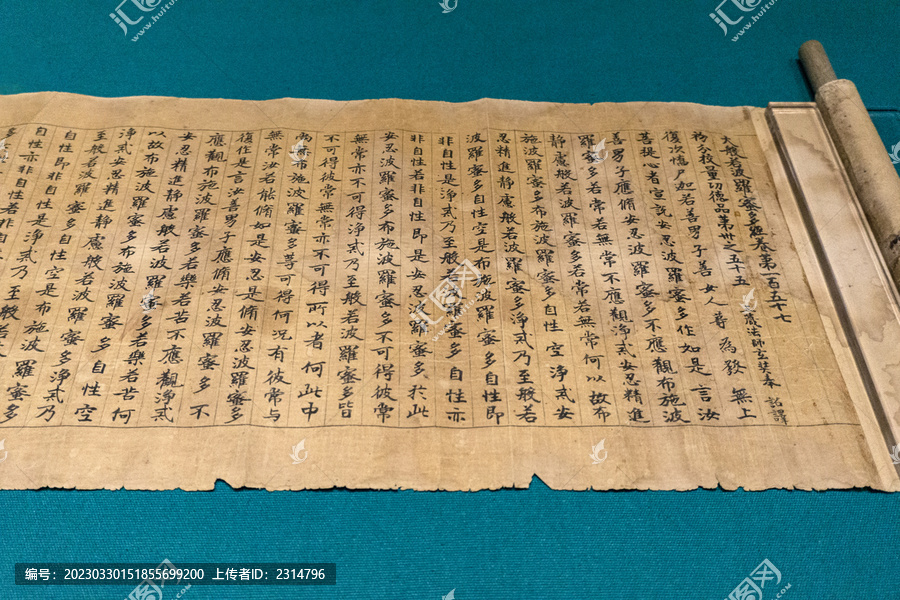 大般若波羅蜜多經卷第一百五十七
初分校量功德品第卅之五十五 三藏法師玄奘奉 詔譯
復次憍尸迦若善男子善女人等為發無上
菩提心者宣說安忍波羅蜜多作如是言汝
善男子應脩安忍波羅蜜多不應觀布施波
羅蜜多若常若無常不應觀淨戒安忍精進
靜慮般若波羅蜜多若常若無常何以故布
施波羅蜜多布施波羅蜜多自性空淨戒安
忍精進靜慮般若波羅蜜多淨戒乃至般若
波羅蜜多自性空是布施波羅蜜多自性即
非自性是淨戒乃至般若波羅蜜多自性亦
非自性若非自性即是安忍波羅蜜多於此
安忍波羅蜜多布施波羅蜜多不可得彼常
無常亦不可得淨戒乃至般若波羅蜜多皆
不可得彼常無常亦不可得所以者何此中
尚無布施波羅蜜多等可得何況有彼常與
無常汝若能脩如是安忍是脩安忍波羅蜜多
復作是言汝善男子應脩安忍波羅蜜多不
應觀布施波羅蜜多若樂若苦不應觀淨戒
安忍精進靜慮般若波羅蜜多若樂若苦何
以故布施波羅蜜多布施波羅蜜多自性空
淨戒安忍精進靜慮般若波羅蜜多淨戒乃
至般若波羅蜜多自性空是布施波羅蜜多
自性即非自性是淨戒乃至般若波羅蜜多
自性亦非自性若非
编号：20230330151855699200 上传者ID：2314796